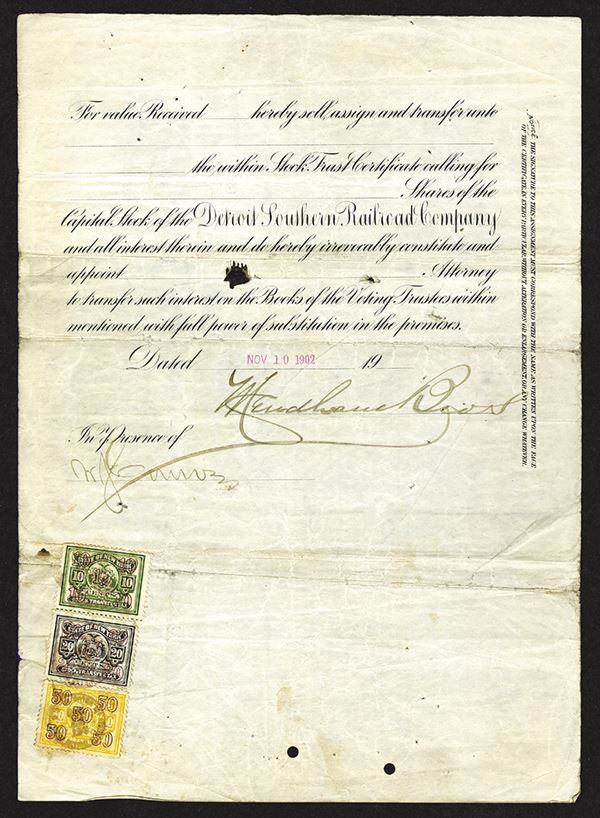 For value Received hereby sell, assign and transfer unto
the within Stock Trust Certificate calling for
Shares of the
Capital Stock of the Detroit Southern Railroad Company
and all interest therein and do hereby irrevocably constitute and
appoint Attorney
to transfer such interest on the Books of the Voting Trustees within
mentioned with full power of substitution in the premises.
Dated NOV 10 1902 19
In Presence of
NOTICE. THE SIGNATURE TO THIS ASSIGNMENT MUST CORRESPOND WITH THE NAME AS WRITTEN UPON THE FACE
OF THE CERTIFICATE IN EVERY PARTICULAR WITHOUT ALTERATION OR ENLARGEMENT OR ANY CHANGE WHATEVER.
10 10
20 20
50 50
50
50 50